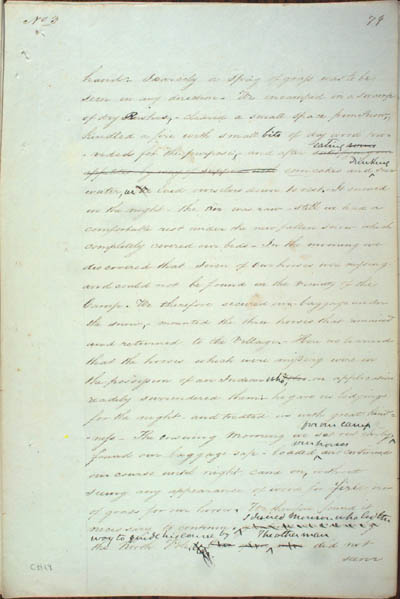 No 3
79
hand. Scarcely a sprig of grass was to be
seen in any direction. We encamped in a swamp
of dry Rushes, cleared a small space from snow,
kindled a fire with small bits of dry wood
for the purpose, and after eating some
corn cakes and Drinking
water, laid ourselves down to rest. It snowed
in the night - the air was raw - still we had a
comfortable rest under the new fallen snow which
completely covered our beds - In the morning we
discovered that Seven of our horses were missing
and could not be found in the vicinity of the
Camp. We therefore secured our baggage under
the snow, mounted the three horses that remained
and returned to the Village. Here we learned
that the horses which were missing were in
the possession of an Indian who, on application
readily surrendered them: he gave us lodgings
for the night and treated us with great kind-
ness - The ensuing Morning we set out for our camp
found our baggage safe - loaded our horses and continued
our course until night came on, without
seeing any appearance of wood for fire nor
of grass for our horses. We therefore found it
necessary to continue I desired Monson who led the
way to guide his course by
the North The other man did not
seem
C1118